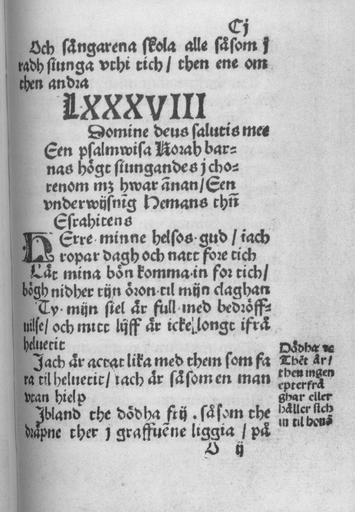 Cj
Och sångarena skola alle såsom j
radh siunga vthi tich / then ene om
then andra
LXXXVIII
Domine deus salutis mee
Een psalmwisa Korah bar-
nas högt siungandes j cho-
renom mz hwar annan / Een
vnderwijsnig Hemans thñ
Esrahitens
HErre minne helsos gud / iach
ropar dagh och natt fore tich
Låt mina bön komma in for tich /
bögh nidher tijn öron til mijn claghan
Ty mijn siel är full med bedröff-
uilse / och mitt lijff är icke longt ifrå
heluetit
Jach är actat lika med them som fa
ra til heluetit / iach är såsom en man
vtan hielp
Jbland the dödha frij . såsom the
dräpne ther j graffuēne liggia / på
Dödha ꝛc
Thēt är /
then ingen
epterfrå
ghar eller
håller sich
in til honō
V ij